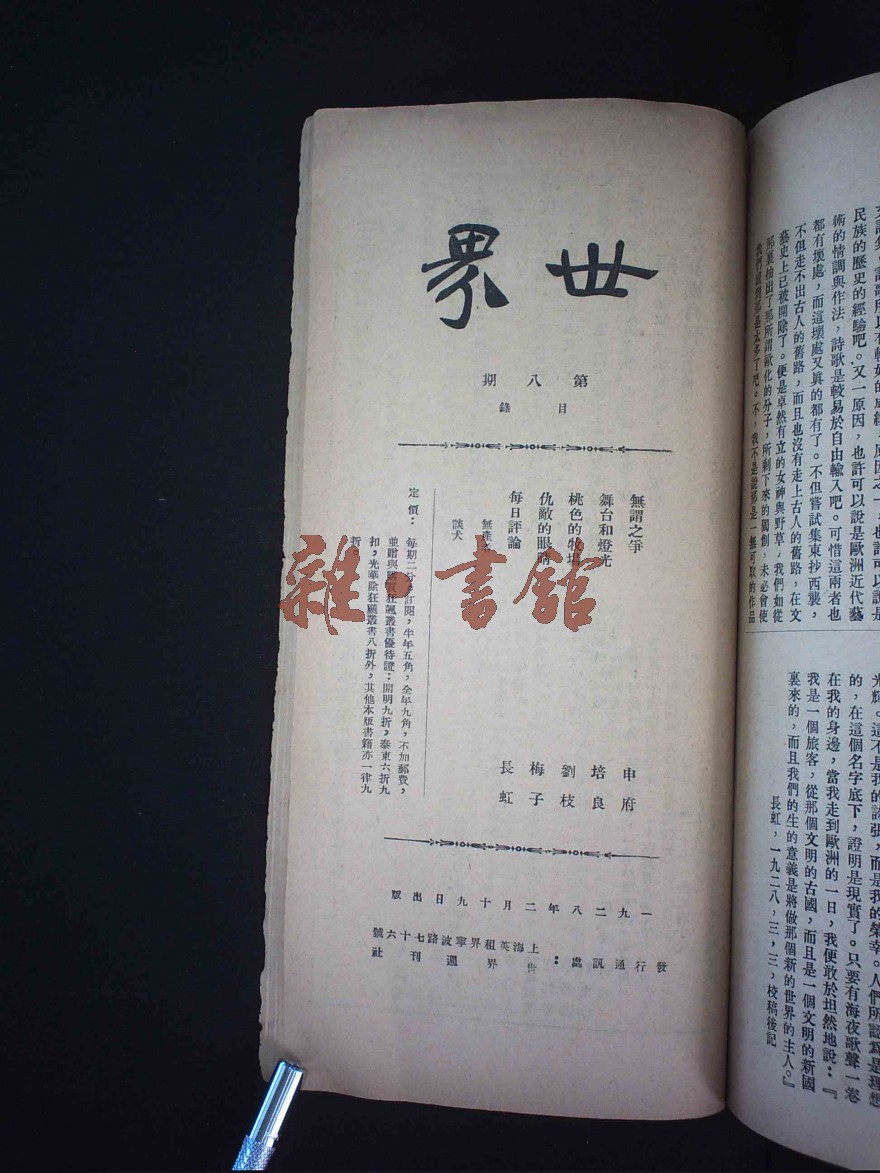 世界
第八期
目錄
無謂之爭 申府
舞台和燈光 培良
桃色的牧場 劉枝
仇敵的眼睛 梅子
每日評論 長虹
無產
談犬
定價：每期二分，訂閱，半年五角，全年九角，不加郵費，
並贈與購買狂飆叢書優待證：開明九折，泰東六折九
扣，光華除狂飆叢書八折外，其他本版書籍亦一律九
折。
一九二八年二月十九日出版
發行通訊處：上海英租界寧波路七十六號
世界週刊社
雜·書館
民族的歷史的經驗吧。又一原因，也許可以說是歐洲近代藝
術的情調與作法，詩歌是較易於自由輸入吧。可惜這兩者也
都有壞處，而這壞處又眞的都有了。不但嘗試集東抄西襲，
不但走不出古人的舊路，而且也沒有走上古人的舊路，在文
藝史上已被開除了。便是卓然有立的女神與野草，我們如從
那裏抽出了那所謂歐化的分子，所剩下來的獨創，未必會使
我們感到那是太多了吧。不，我不是說那是一無可取的作品
光輝。這不是我的誇張，而是我的榮幸。人們所謂爲是理想
的，在這個名字底下，證明是現實了。只要有海夜歌聲一卷
在我的身邊，當我走到歐洲的一日，我便敢於坦然地說：『
我是一個旅客，從那個文明的古國，而且是一個文明的新國
裏來的，而且我們的生的意義是將做那個新的世界的主人。』
長虹，一九二八，三，三，校稿後記